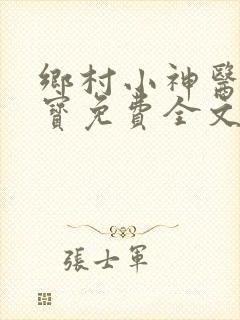 鄉村小神醫
寶免費全文
張士軍